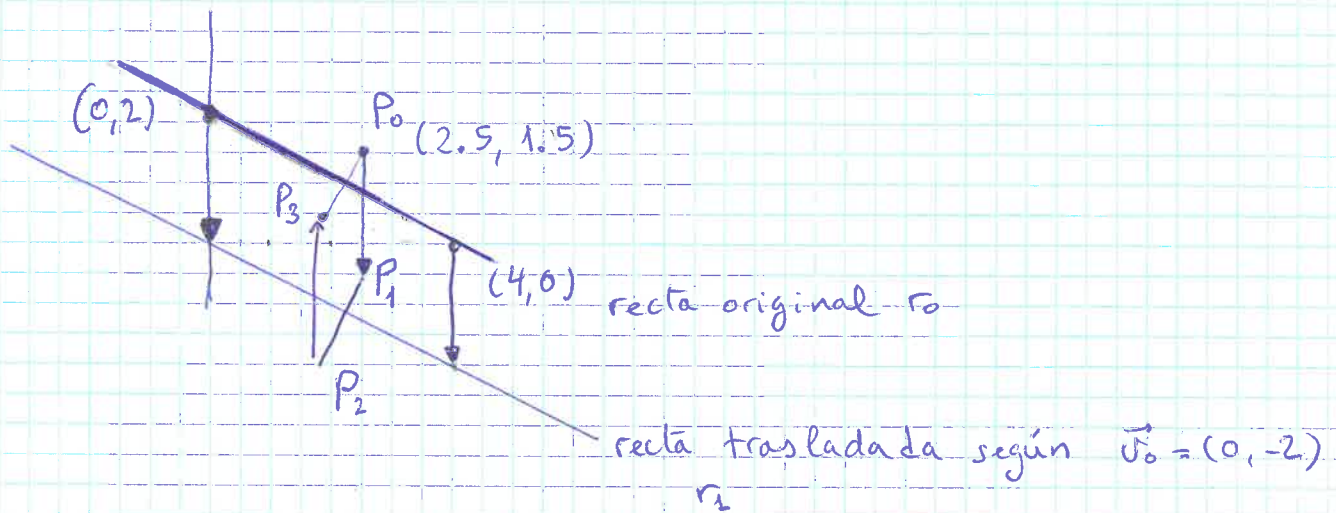 (0,2)
P₀ (2.5, 1.5)
P₃
P₁
(4,0)
recta original r₀
P₂
recta trasladada según v⃗₀ = (0,-2)
r₁